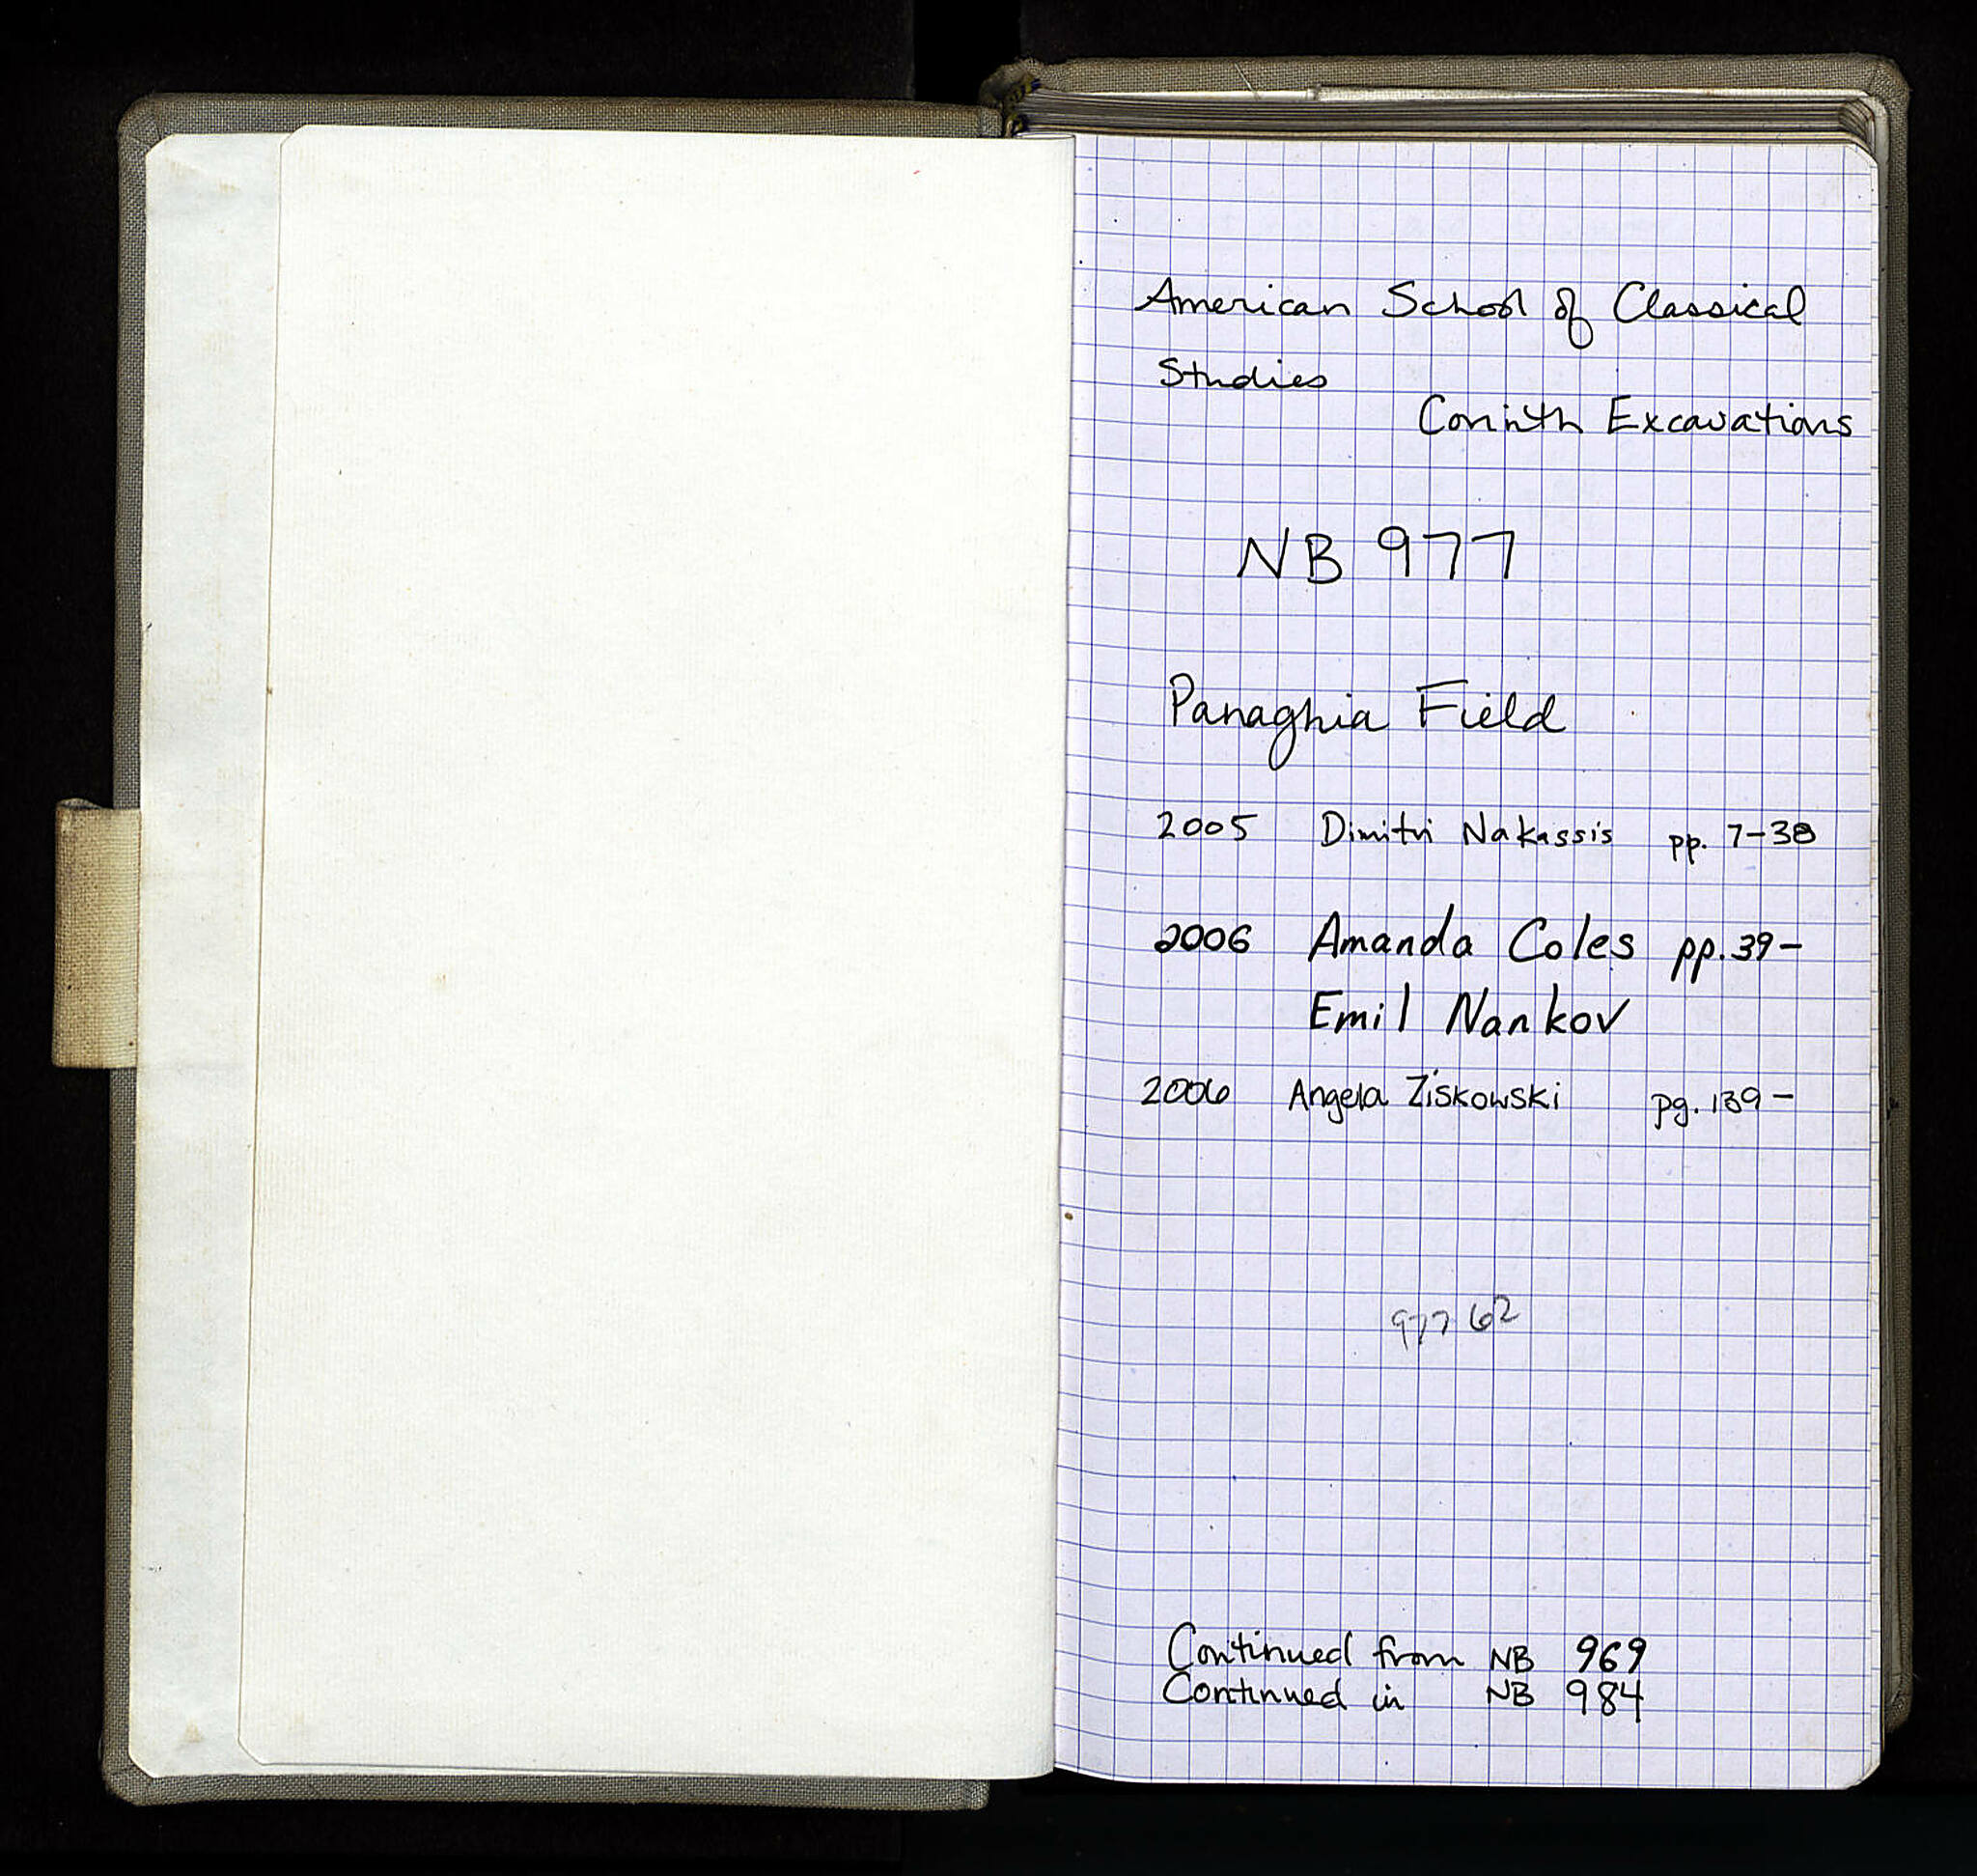 American School of Classical
Studies
Corinth Excavations
NB 977
Panaghia Field
2005 Dimitri Nakassis pp. 7-38
2006 Amanda Coles pp. 39-
Emil Nankov
2006 Angela Ziskowski pg. 139-
977 62
Continued from NB 969
Continued in NB 984